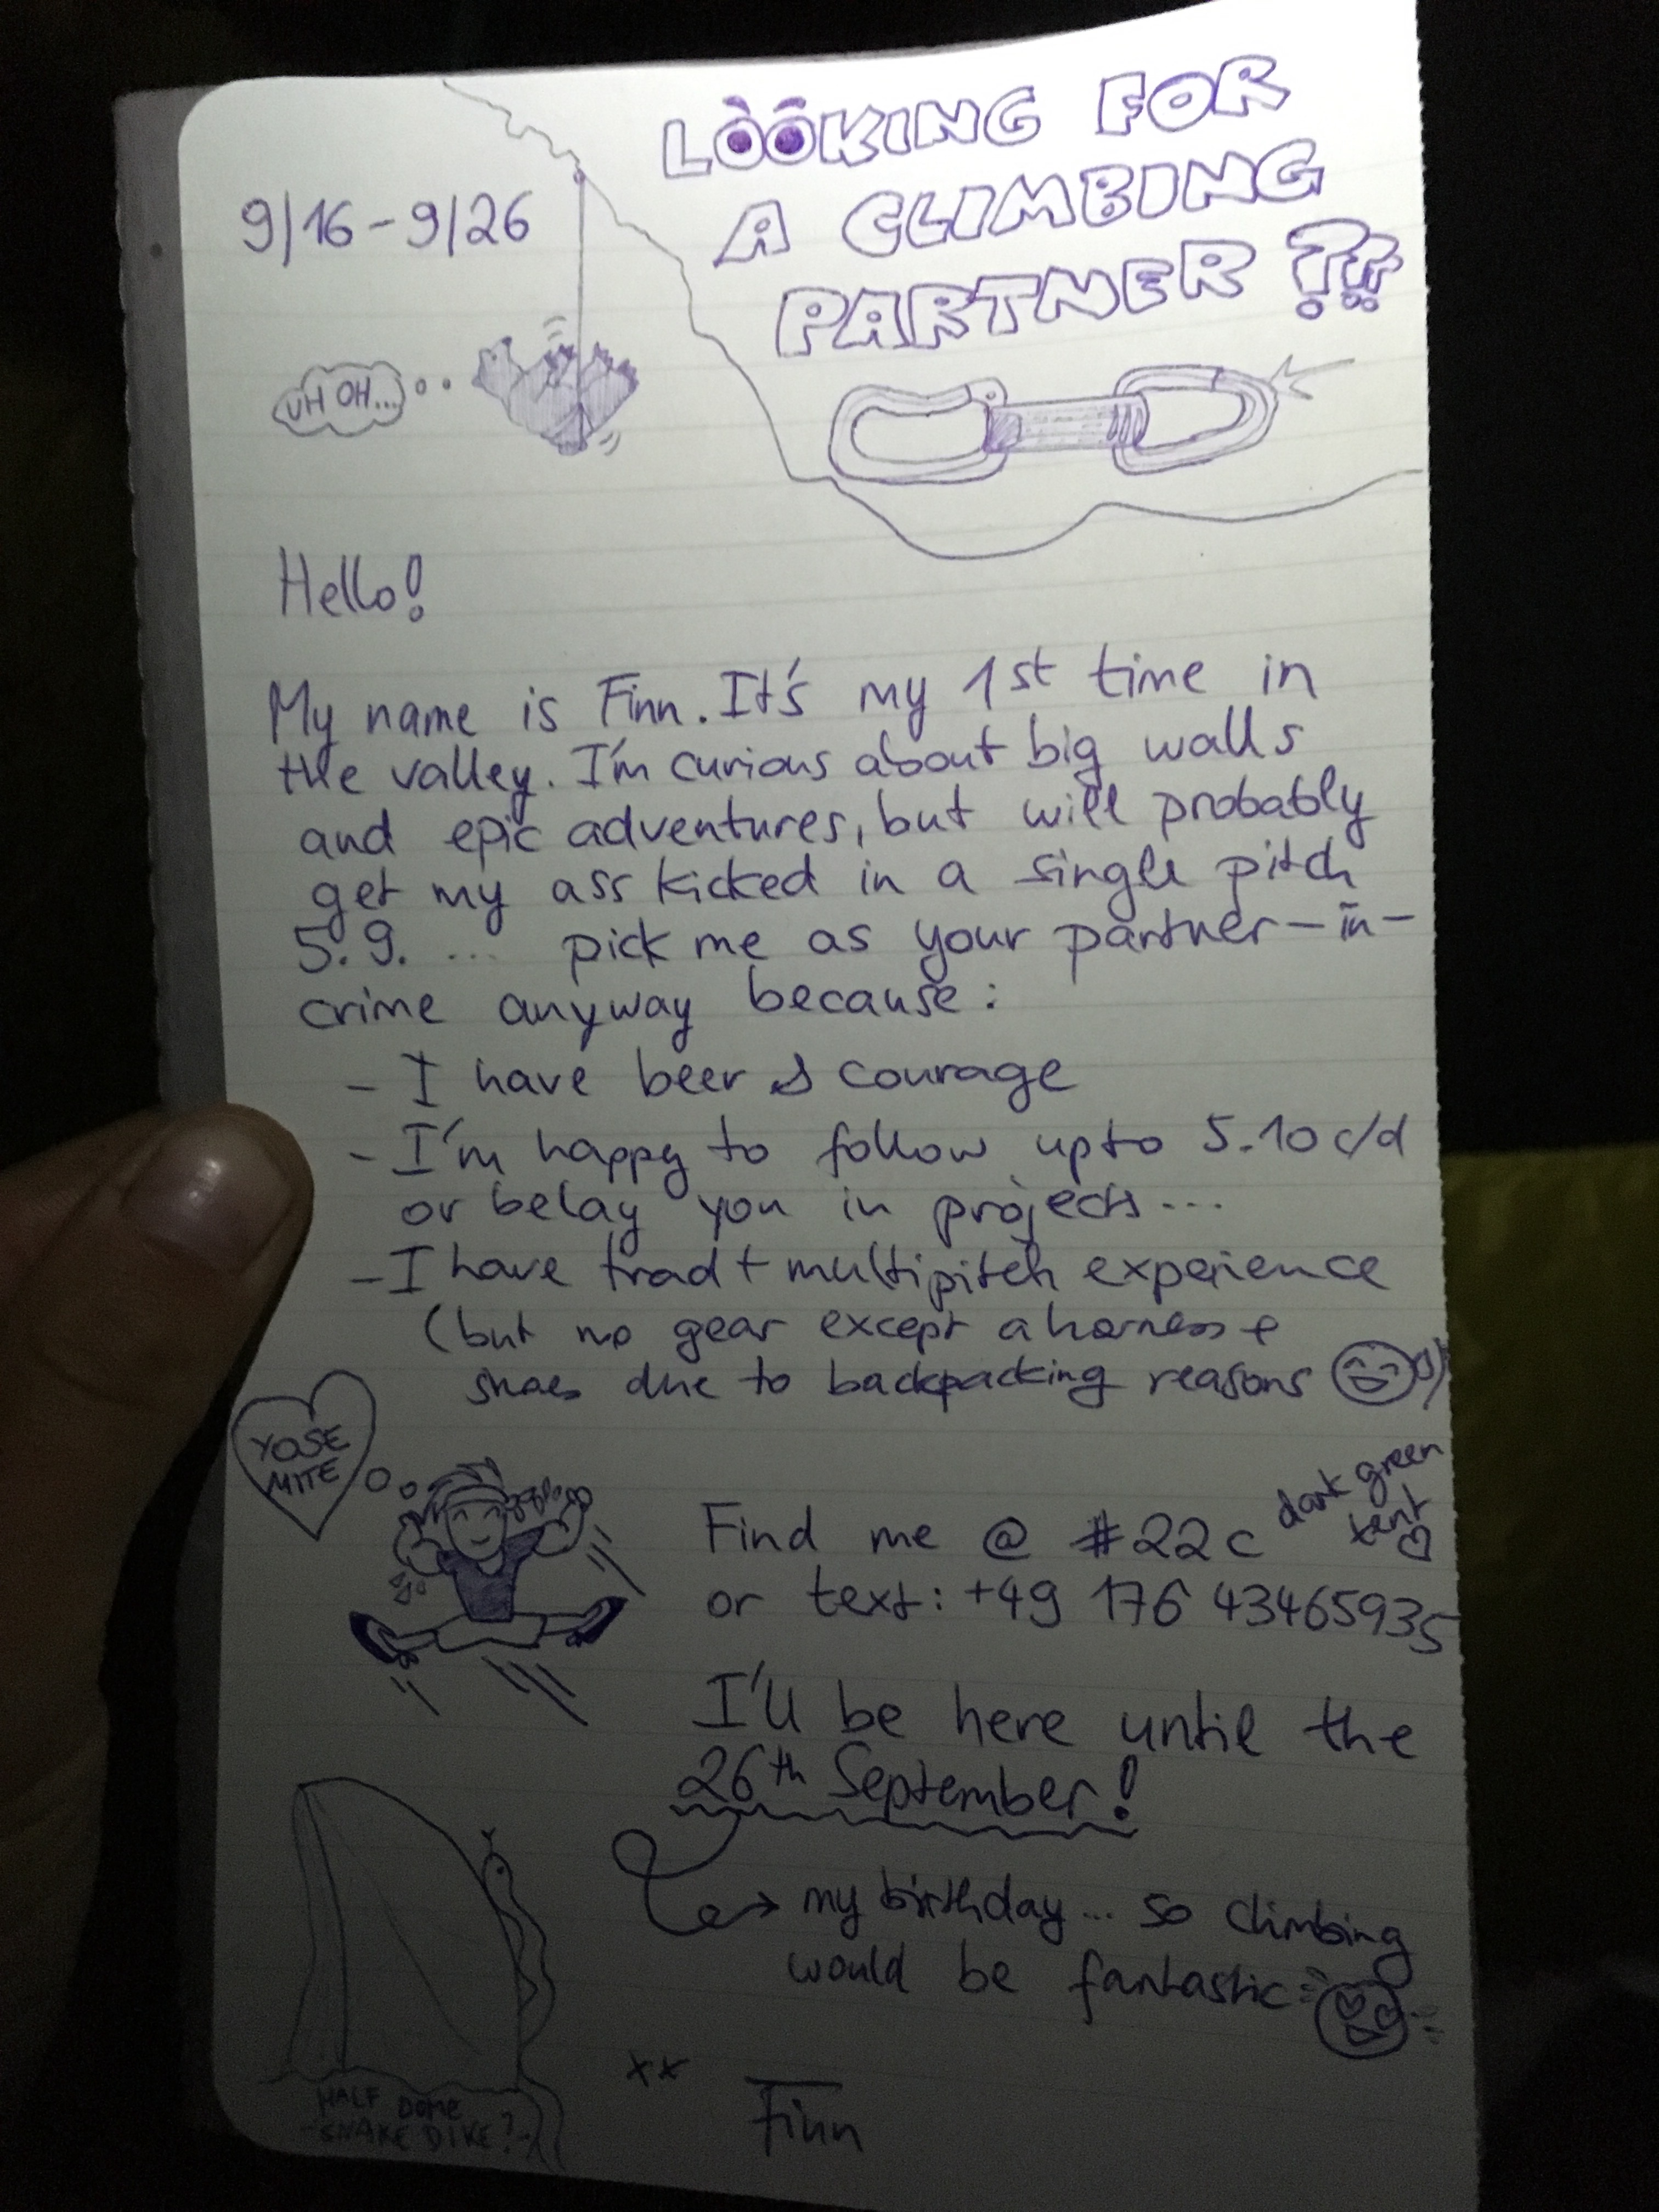 LOOKING FOR
A CLIMBING
PARTNER ???
9/16 - 9/26
UH OH...
Hello!
My name is Finn. It's my 1st time in
the valley. I'm curious about big walls
and epic adventures, but will probably
get my ass kicked in a single pitch
5.9. ... pick me as your partner-in-
crime anyway because:
- I have beer & courage
- I'm happy to follow upto 5.10 c/d
or belay you in projects...
- I have trad + multipitch experience
(but no gear except a harness +
shoes due to backpacking reasons)
YOSE
MITE
Find me @ #22c dark green
tent
or text: +49 176 43465935
I'll be here until the
26th September!
my birthday... so climbing
would be fantastic
xx Finn
HALF DOME
- SNAKE DIKE? -